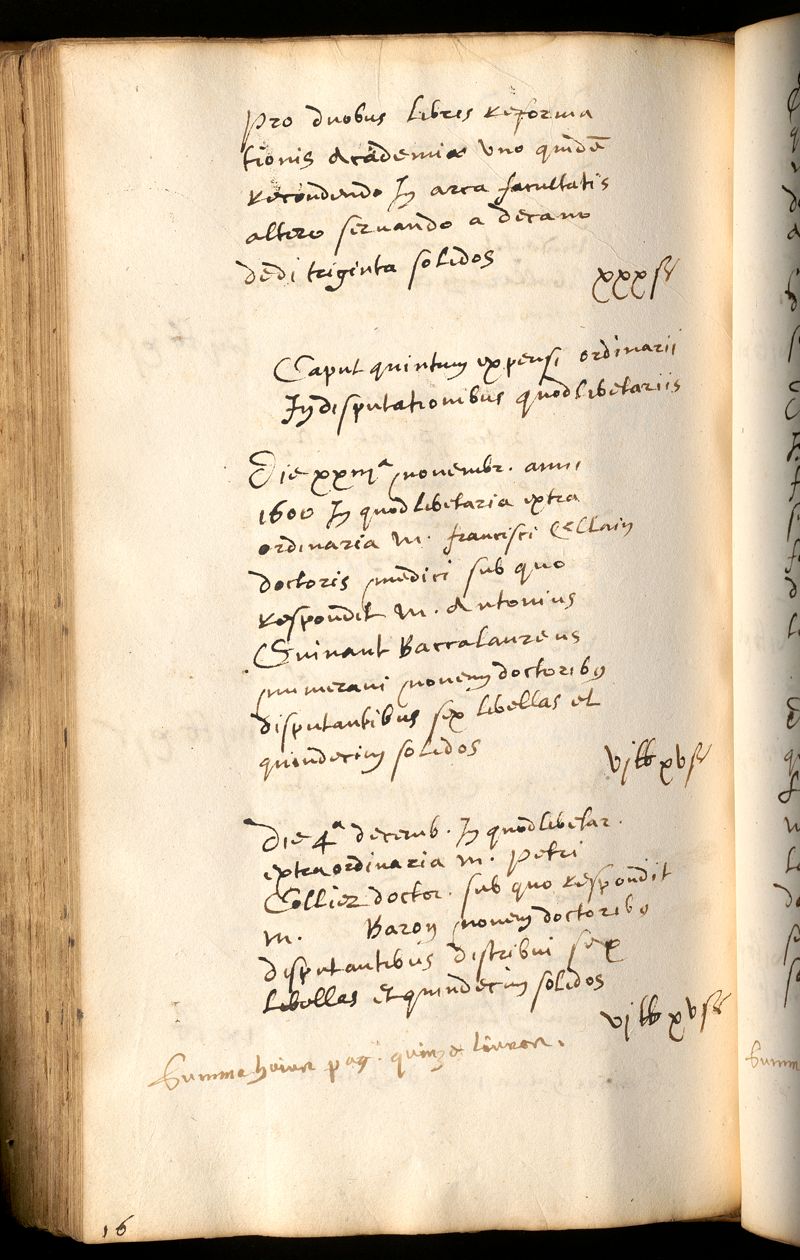 Pro duobus libris reforma
tionis Academiæ uno quidē
recondendo In arca facultatis
altero servando a decano
dedi triginta solidos
xxx s
Caput quintum expensi ordinarii
In disputationibus quodlibetariis
Die novembr. anni
1600 In quodlibetaria extra
ordinaria M. francisci Cellain
doctoris medici sub quo
respondit M. Antonius
Guinant Baccalaureus
numeravi novem doctoribus
disputantibus sex libellas et
quindecim solidos
vi lb xv s
Die 4ª decemb. In quodlibetar.
extraordinaria M. Petri
Collier doctor. sub quo respondit
M. Baron novem doctoribus
disputantibus distribui sex
libellas et quindecim solidos
vi lb xv s
Summa pag. quinze livres.
16
Summa